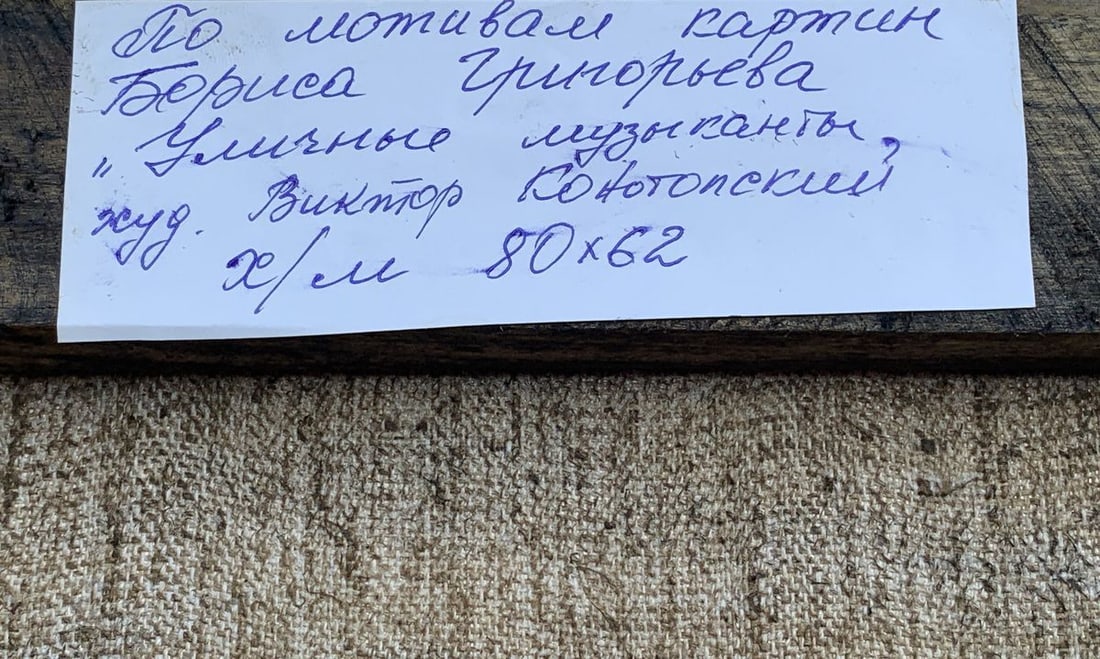 По мотивам картин
Бориса Григорьева
„Уличные музыканты„
худ. Виктор Конотопский
х/м 80х62